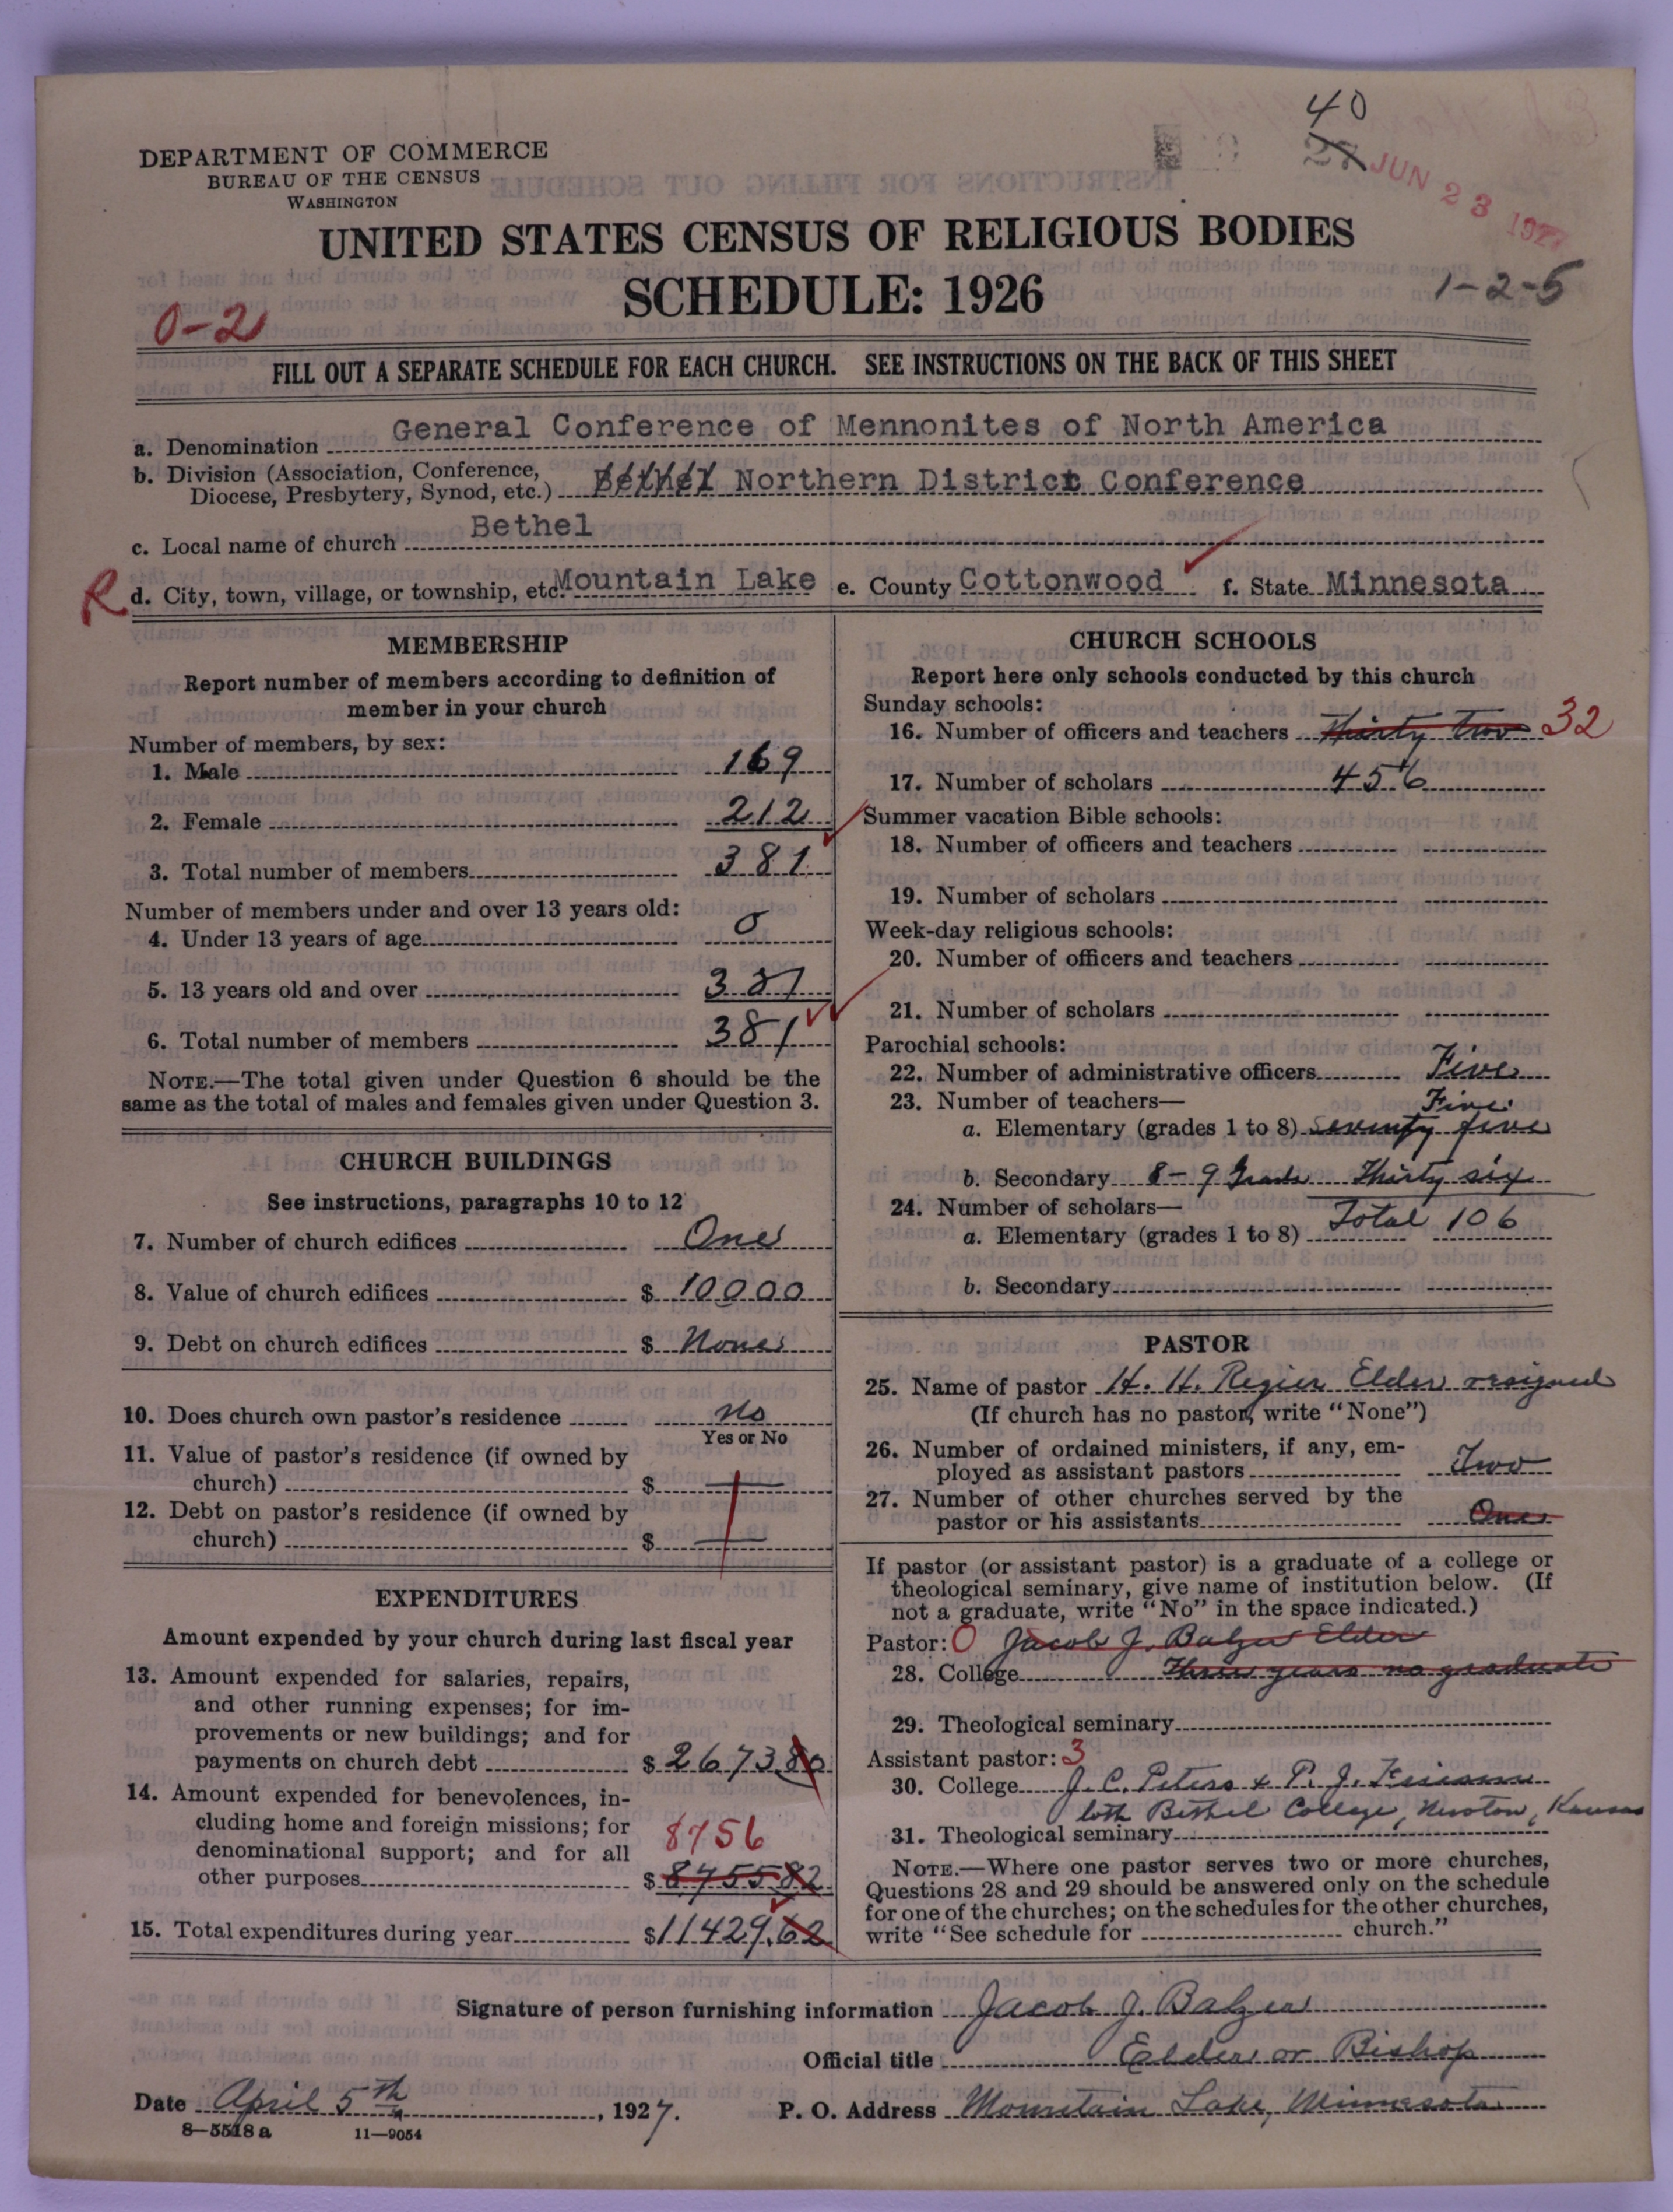 40
JUN 23 1927
DEPARTMENT OF COMMERCE
BUREAU OF THE CENSUS
WASHINGTON
UNITED STATES CENSUS OF RELIGIOUS BODIES
SCHEDULE: 1926
1-2-5
0-2
FILL OUT A SEPARATE SCHEDULE FOR EACH CHURCH. SEE INSTRUCTIONS ON THE BACK OF THIS SHEET
a. Denomination General Conference of Mennonites of North America
b. Division (Association, Conference,
Diocese, Presbytery, Synod, etc.) Bethel Northern District Conference
c. Local name of church Bethel
R d. City, town, village, or township, etc. Mountain Lake e. County Cottonwood f. State Minnesota
MEMBERSHIP
Report number of members according to definition of
member in your church
Number of members, by sex:
1. Male 169
2. Female 212
3. Total number of members 381
Number of members under and over 13 years old:
4. Under 13 years of age 0
5. 13 years old and over 381
6. Total number of members 381
NOTE.—The total given under Question 6 should be the
same as the total of males and females given under Question 3.
CHURCH BUILDINGS
See instructions, paragraphs 10 to 12
7. Number of church edifices One
8. Value of church edifices $ 10000
9. Debt on church edifices $ None
10. Does church own pastor's residence no
Yes or No
11. Value of pastor's residence (if owned by
church) $
12. Debt on pastor's residence (if owned by
church) $
EXPENDITURES
Amount expended by your church during last fiscal year
13. Amount expended for salaries, repairs,
and other running expenses; for im-
provements or new buildings; and for
payments on church debt $ 2673.80
14. Amount expended for benevolences, in-
cluding home and foreign missions; for
denominational support; and for all
8756
other purposes $ 8755 82
15. Total expenditures during year $ 11429.62
CHURCH SCHOOLS
Report here only schools conducted by this church
Sunday schools:
16. Number of officers and teachers Thirty two 32
17. Number of scholars 456
Summer vacation Bible schools:
18. Number of officers and teachers
19. Number of scholars
Week-day religious schools:
20. Number of officers and teachers
21. Number of scholars
Parochial schools:
22. Number of administrative officers Five
23. Number of teachers— Five
a. Elementary (grades 1 to 8) Seventy five
b. Secondary 8-9 Grade Thirty six
24. Number of scholars—
a. Elementary (grades 1 to 8) Total 106
b. Secondary
PASTOR
25. Name of pastor H. H. Regier Elder resigned
(If church has no pastor, write "None")
26. Number of ordained ministers, if any, em-
ployed as assistant pastors Two
27. Number of other churches served by the
pastor or his assistants One
If pastor (or assistant pastor) is a graduate of a college or
theological seminary, give name of institution below. (If
not a graduate, write "No" in the space indicated.)
Pastor: 0 Jacob J. Balzer Elder
28. College Three years no graduate
29. Theological seminary
Assistant pastor: 3
30. College J. C. Peters & P. J.
both Bethel College, Newton, Kansas
31. Theological seminary
NOTE.—Where one pastor serves two or more churches,
Questions 28 and 29 should be answered only on the schedule
for one of the churches; on the schedules for the other churches,
write "See schedule for church."
Signature of person furnishing information Jacob J. Balzer
Official title Elder or Bishop
Date April 5th, 1927. P. O. Address Mountain Lake, Minnesota
8—5518 a 11—9054